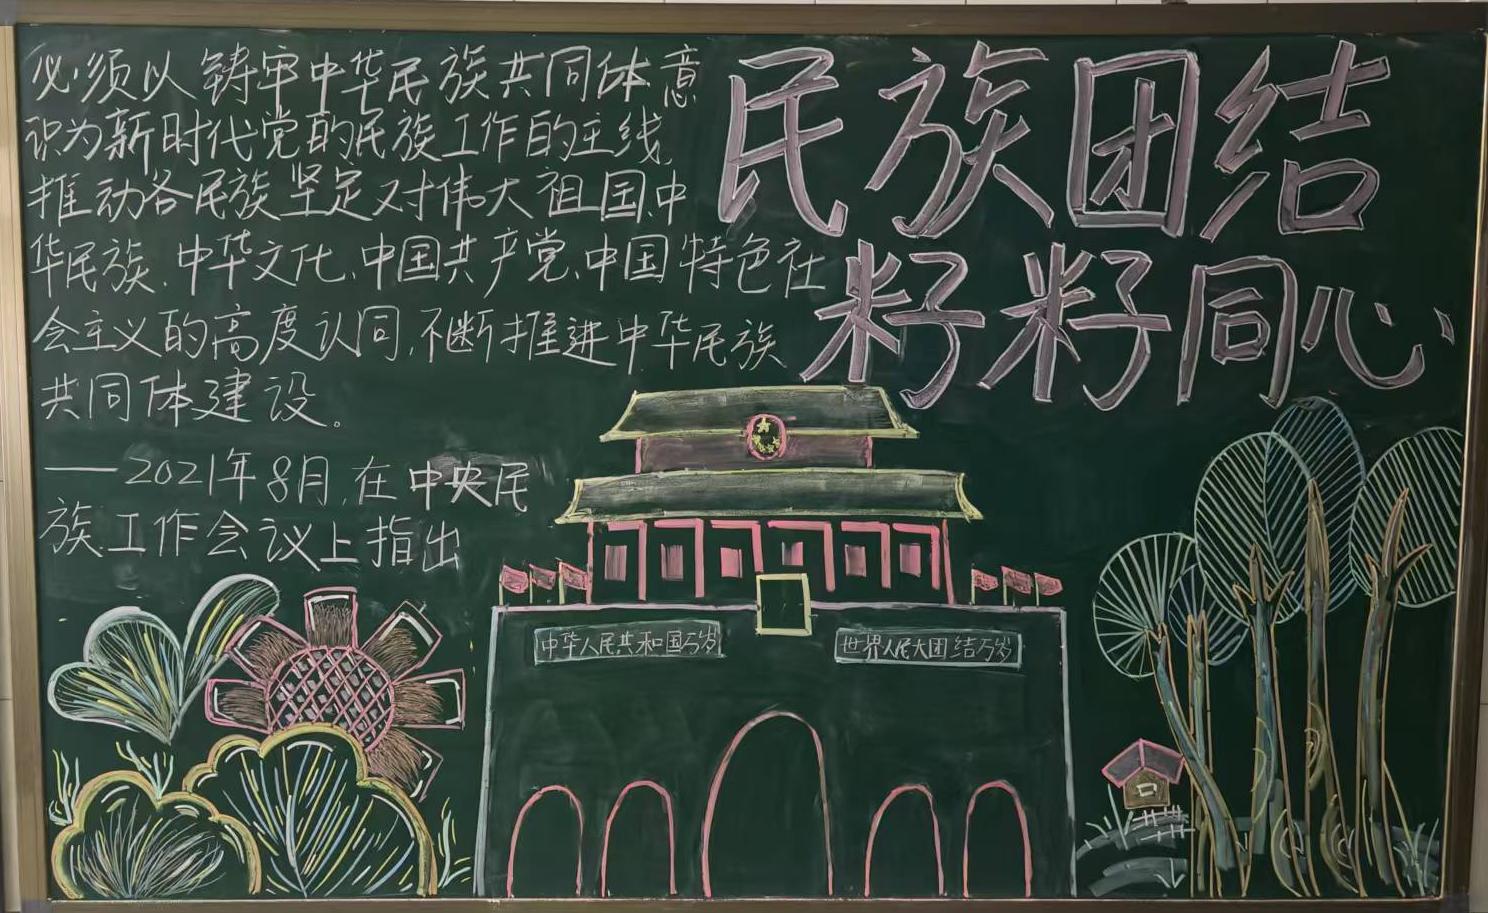 必须以铸牢中华民族共同体意
识为新时代党的民族工作的主线，
推动各民族坚定对伟大祖国、中
华民族、中华文化、中国共产党、中国特色社
会主义的高度认同，不断推进中华民族
共同体建设。
——2021年8月，在中央民
族工作会议上指出
民族团结
籽籽同心
中华人民共和国万岁
世界人民大团结万岁